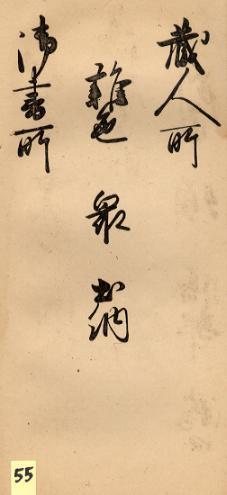 蔵人所
雑色 衆 出納
御書所
55